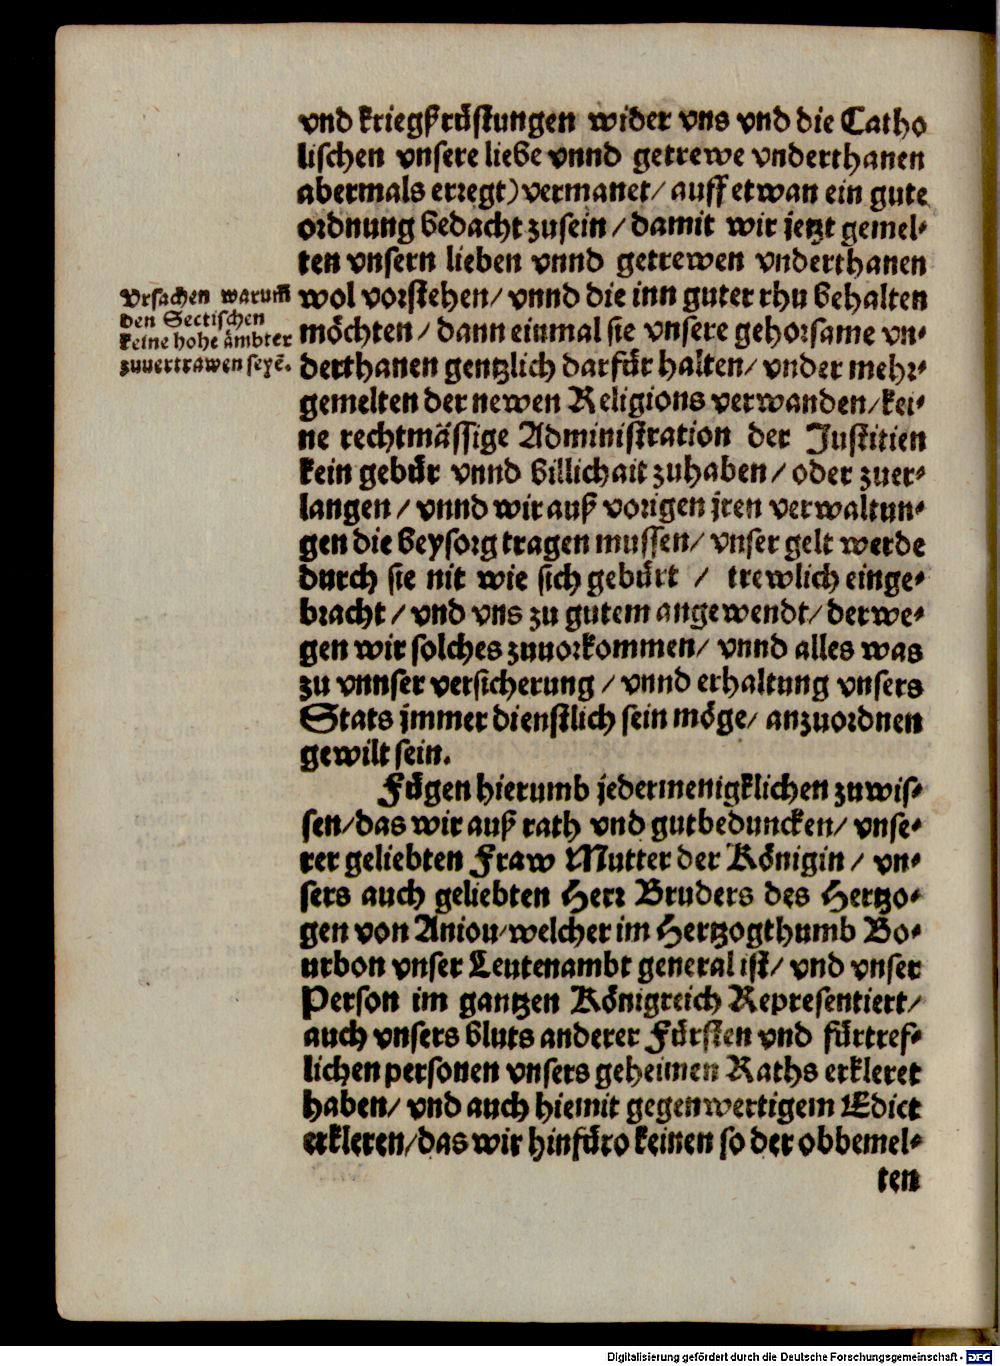 vnd kriegßrüstungen wider vns vnd die Catho
lischen vnsere liebe vnnd getrewe vnderthanen
abermals erregt) vermanet/ auff etwan ein gute
ordnung bedacht zusein/ damit wir jetzt gemel-
ten vnsern lieben vnnd getrewen vnderthanen
Vrsachen warum̃
den Sectischen
keine hohe ämbter
zuuertrawen seyẽ.
wol vorstehen/ vnnd die inn guter rhu behalten
möchten/ dann einmal sie vnsere gehorsame vn-
derthanen gentzlich darfür halten/ vnder mehr-
gemelten der newen Religions verwanden/ kei-
ne rechtmässige Administration der Justitien
kein gebür vnnd billichait zuhaben/ oder zuer-
langen/ vnnd wir auß vorigen jren verwaltun-
gen die beysorg tragen mussen/ vnser gelt werde
durch sie nit wie sich gebürt / trewlich einge-
bracht/ vnd vns zu gutem angewendt/ derwe-
gen wir solches zuuorkommen/ vnnd alles was
zu vnnser versicherung/ vnnd erhaltung vnsers
Stats jmmer dienstlich sein möge/ anzuordnen
gewilt sein.
Fügen hierumb jedermenigklichen zuwis-
sen/ das wir auß rath vnd gutbeduncken/ vnse-
rer geliebten Fraw Mutter der Königin/ vn-
sers auch geliebten Herr Bruders des Hertzo-
gen von Aniou/ welcher im Hertzogthumb Bo-
urbon vnser Leutenambt general ist/ vnd vnser
Person im gantzen Königreich Representiert/
auch vnsers bluts anderer Fürsten vnd fürtref-
lichen personen vnsers geheimen Raths erkleret
haben/ vnd auch hiemit gegenwertigem Edict
erkleren/ das wir hinfüro keinen so der obbemel-
ten
Digitalisierung gefördert durch die Deutsche Forschungsgemeinschaft - DFG